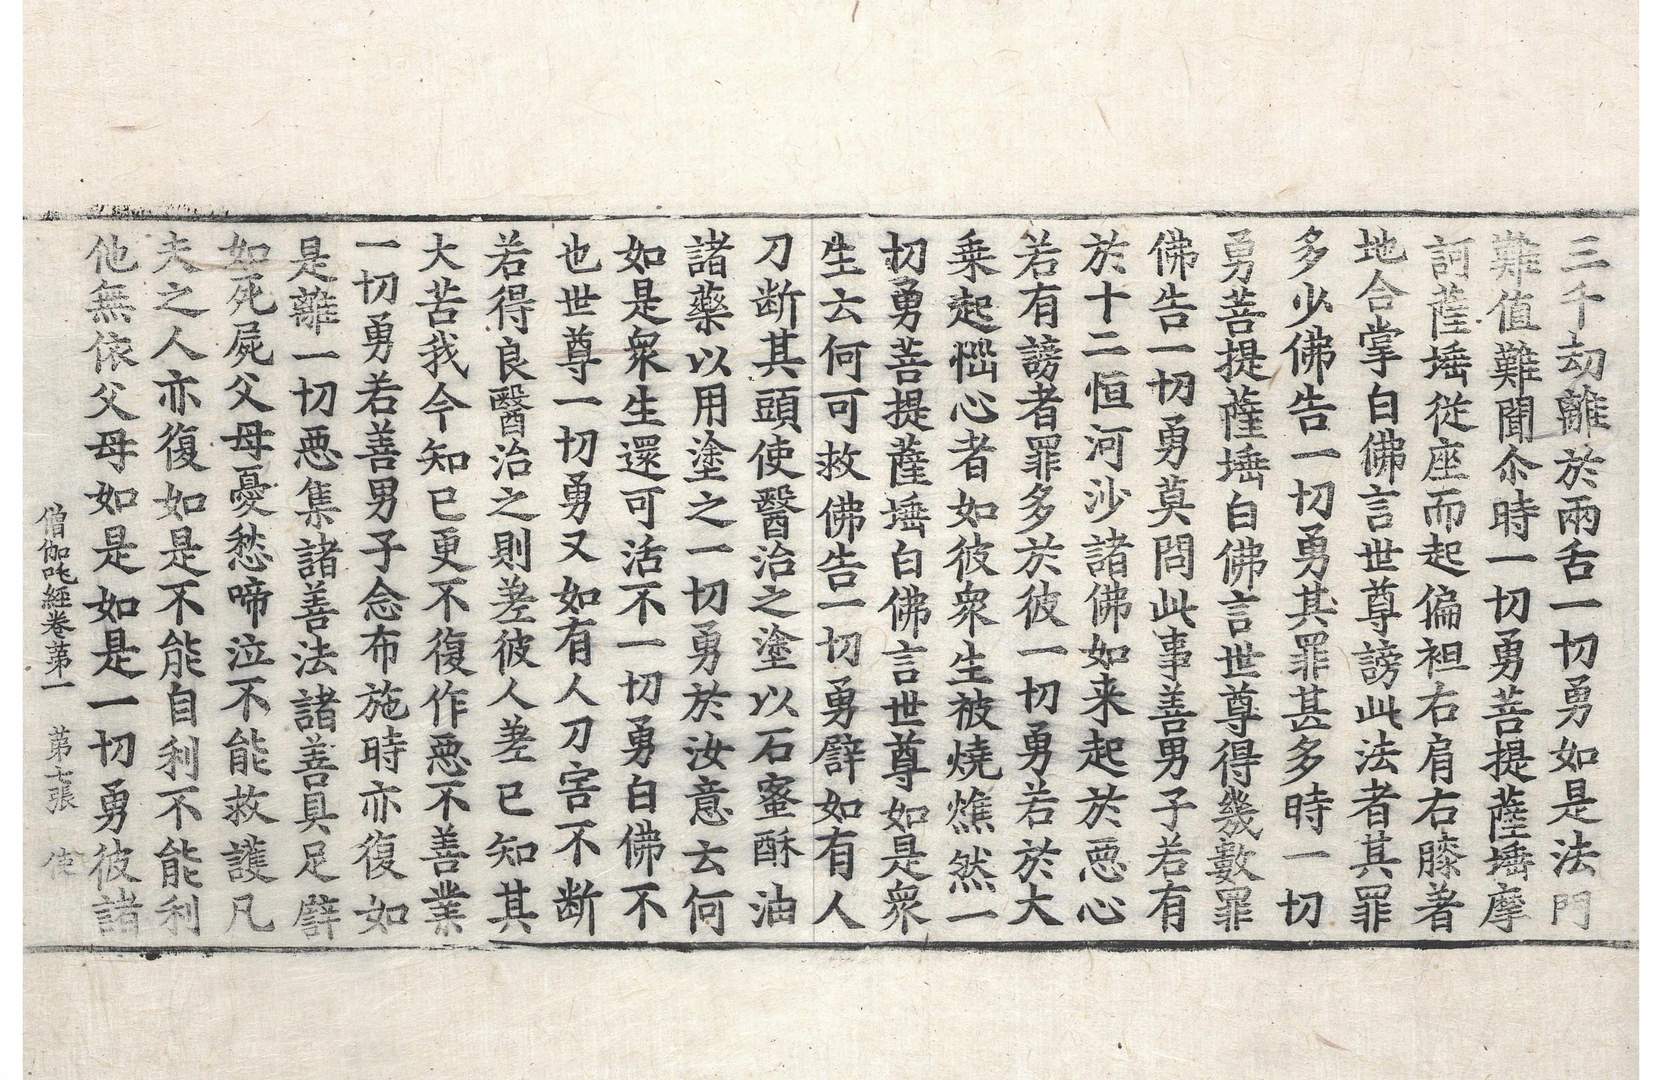 三千劫離於兩舌一切勇如是法門
難值難聞尒時一切勇菩提薩埵摩
訶薩埵從座而起偏袒右肩右膝著
地合掌白佛言世尊謗此法者其罪
多少佛告一切勇其罪甚多時一切
勇菩提薩埵白佛言世尊得幾數罪
佛告一切勇莫問此事善男子若有
於十二恒河沙諸佛如来起於惡心
若有謗者罪多於彼一切勇若於大
乗起惱心者如彼衆生被燒燋然一
切勇菩提薩埵白佛言世尊如是衆
生云何可救佛告一切勇譬如有人
刀断其頭使醫治之塗以石蜜酥油
諸藥以用塗之一切勇於汝意云何
如是衆生還可活不一切勇白佛不
也世尊一切勇又如有人刀害不断
若得良醫治之則差彼人差已知其
大苦我今知已更不復作惡不善業
一切勇若善男子念布施時亦復如
是離一切惡集諸善法諸善具足譬
如死屍父母憂愁啼泣不能救護凡
夫之人亦復如是不能自利不能利
他無依父母如是如是一切勇彼諸
僧伽吒經卷第一　第七張　使